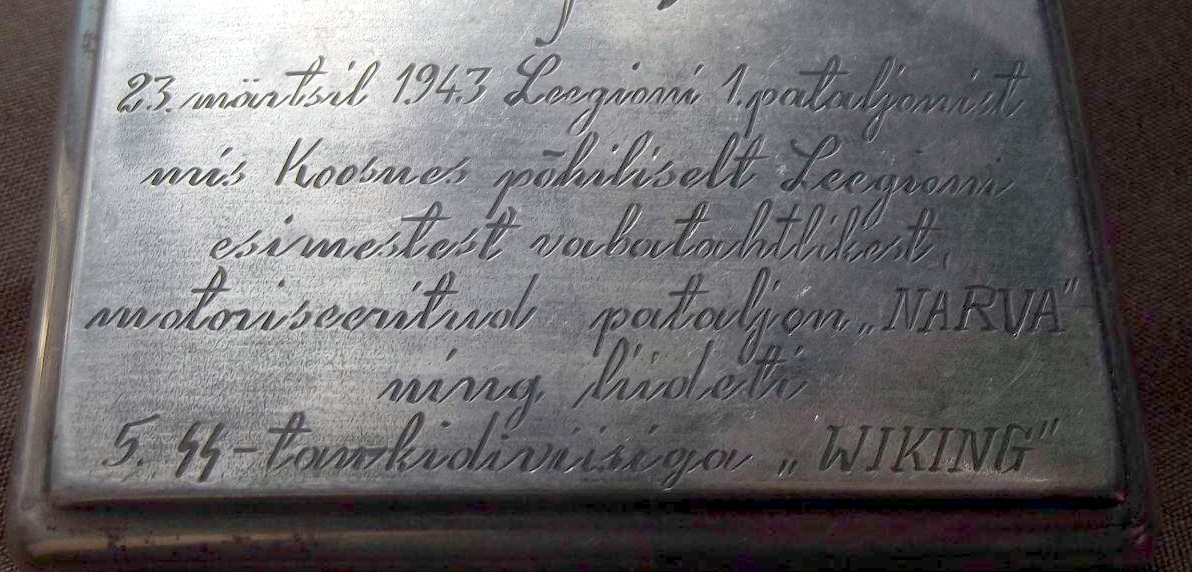 23. märtsil 1943 Leegioni 1. pataljonist
mis Koosnes põhiliselt Leegioni
esimestest vabatahtlikest,
motoriseeritud pataljon „NARVA"
ning liideti
5. SS-tankidiviisiga „WIKING"